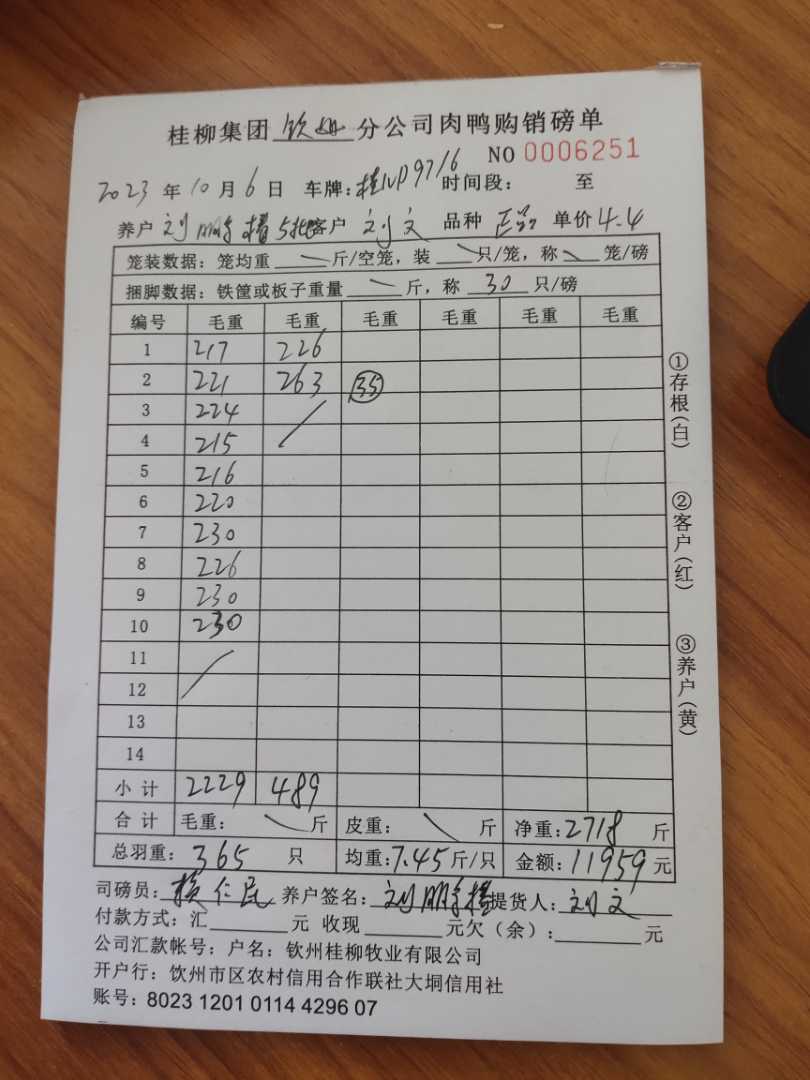 桂柳集团 钦州 分公司肉鸭购销磅单
NO 0006251
2023 年 10 月 6 日 车牌: 桂NP9716 时间段: 至
养户 刘 客户 刘文 品种 正品 单价 4.4
笼装数据: 笼均重 \ 斤/空笼, 装 \ 只/笼, 称 \ 笼/磅
捆脚数据: 铁筐或板子重量 \ 斤, 称 30 只/磅
编号 毛重 毛重 毛重 毛重 毛重 毛重
1 217 226
2 221 263 (35)
3 224
4 215
5 216
6 220
7 230
8 226
9 230
10 230
11
12
13
14
小计 2229 489
合计 毛重: \ 斤 皮重: \ 斤 净重: 2718 斤
总羽重: 365 只 均重: 7.45 斤/只 金额: 11959 元
司磅员: 仁民 养户签名: 刘 提货人: 刘文
付款方式: 汇 元 收现 元 欠(余): 元
公司汇款帐号: 户名: 钦州桂柳牧业有限公司
开户行: 饮州市区农村信用合作联社大垌信用社
账号: 8023 1201 0114 4296 07
①存根(白)
②客户(红)
③养户(黄)